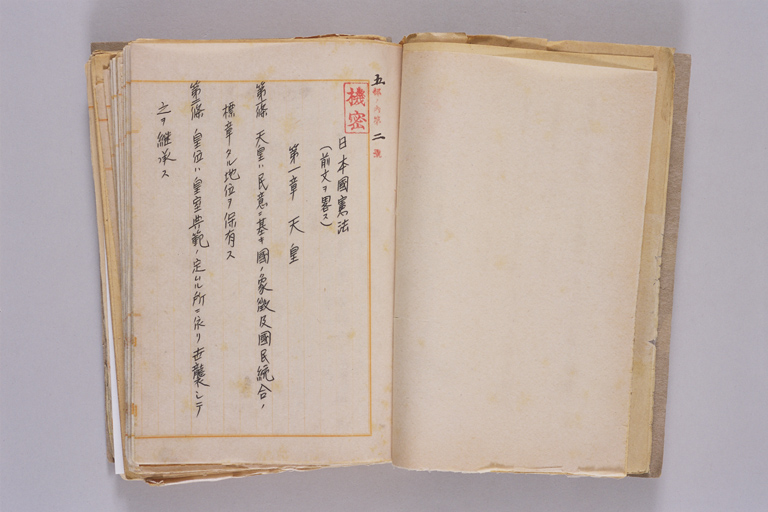 五部ノ内第二號
機密
日本國憲法
(前文ヲ畧ス)
第一章 天皇
第一條 天皇ハ民意ニ基キ國ノ象徴及國民統合ノ
標章タル地位ヲ保有ス
第二條 皇位ハ皇室典範ノ定ムル所ニ依リ世襲シテ
之ヲ継承ス